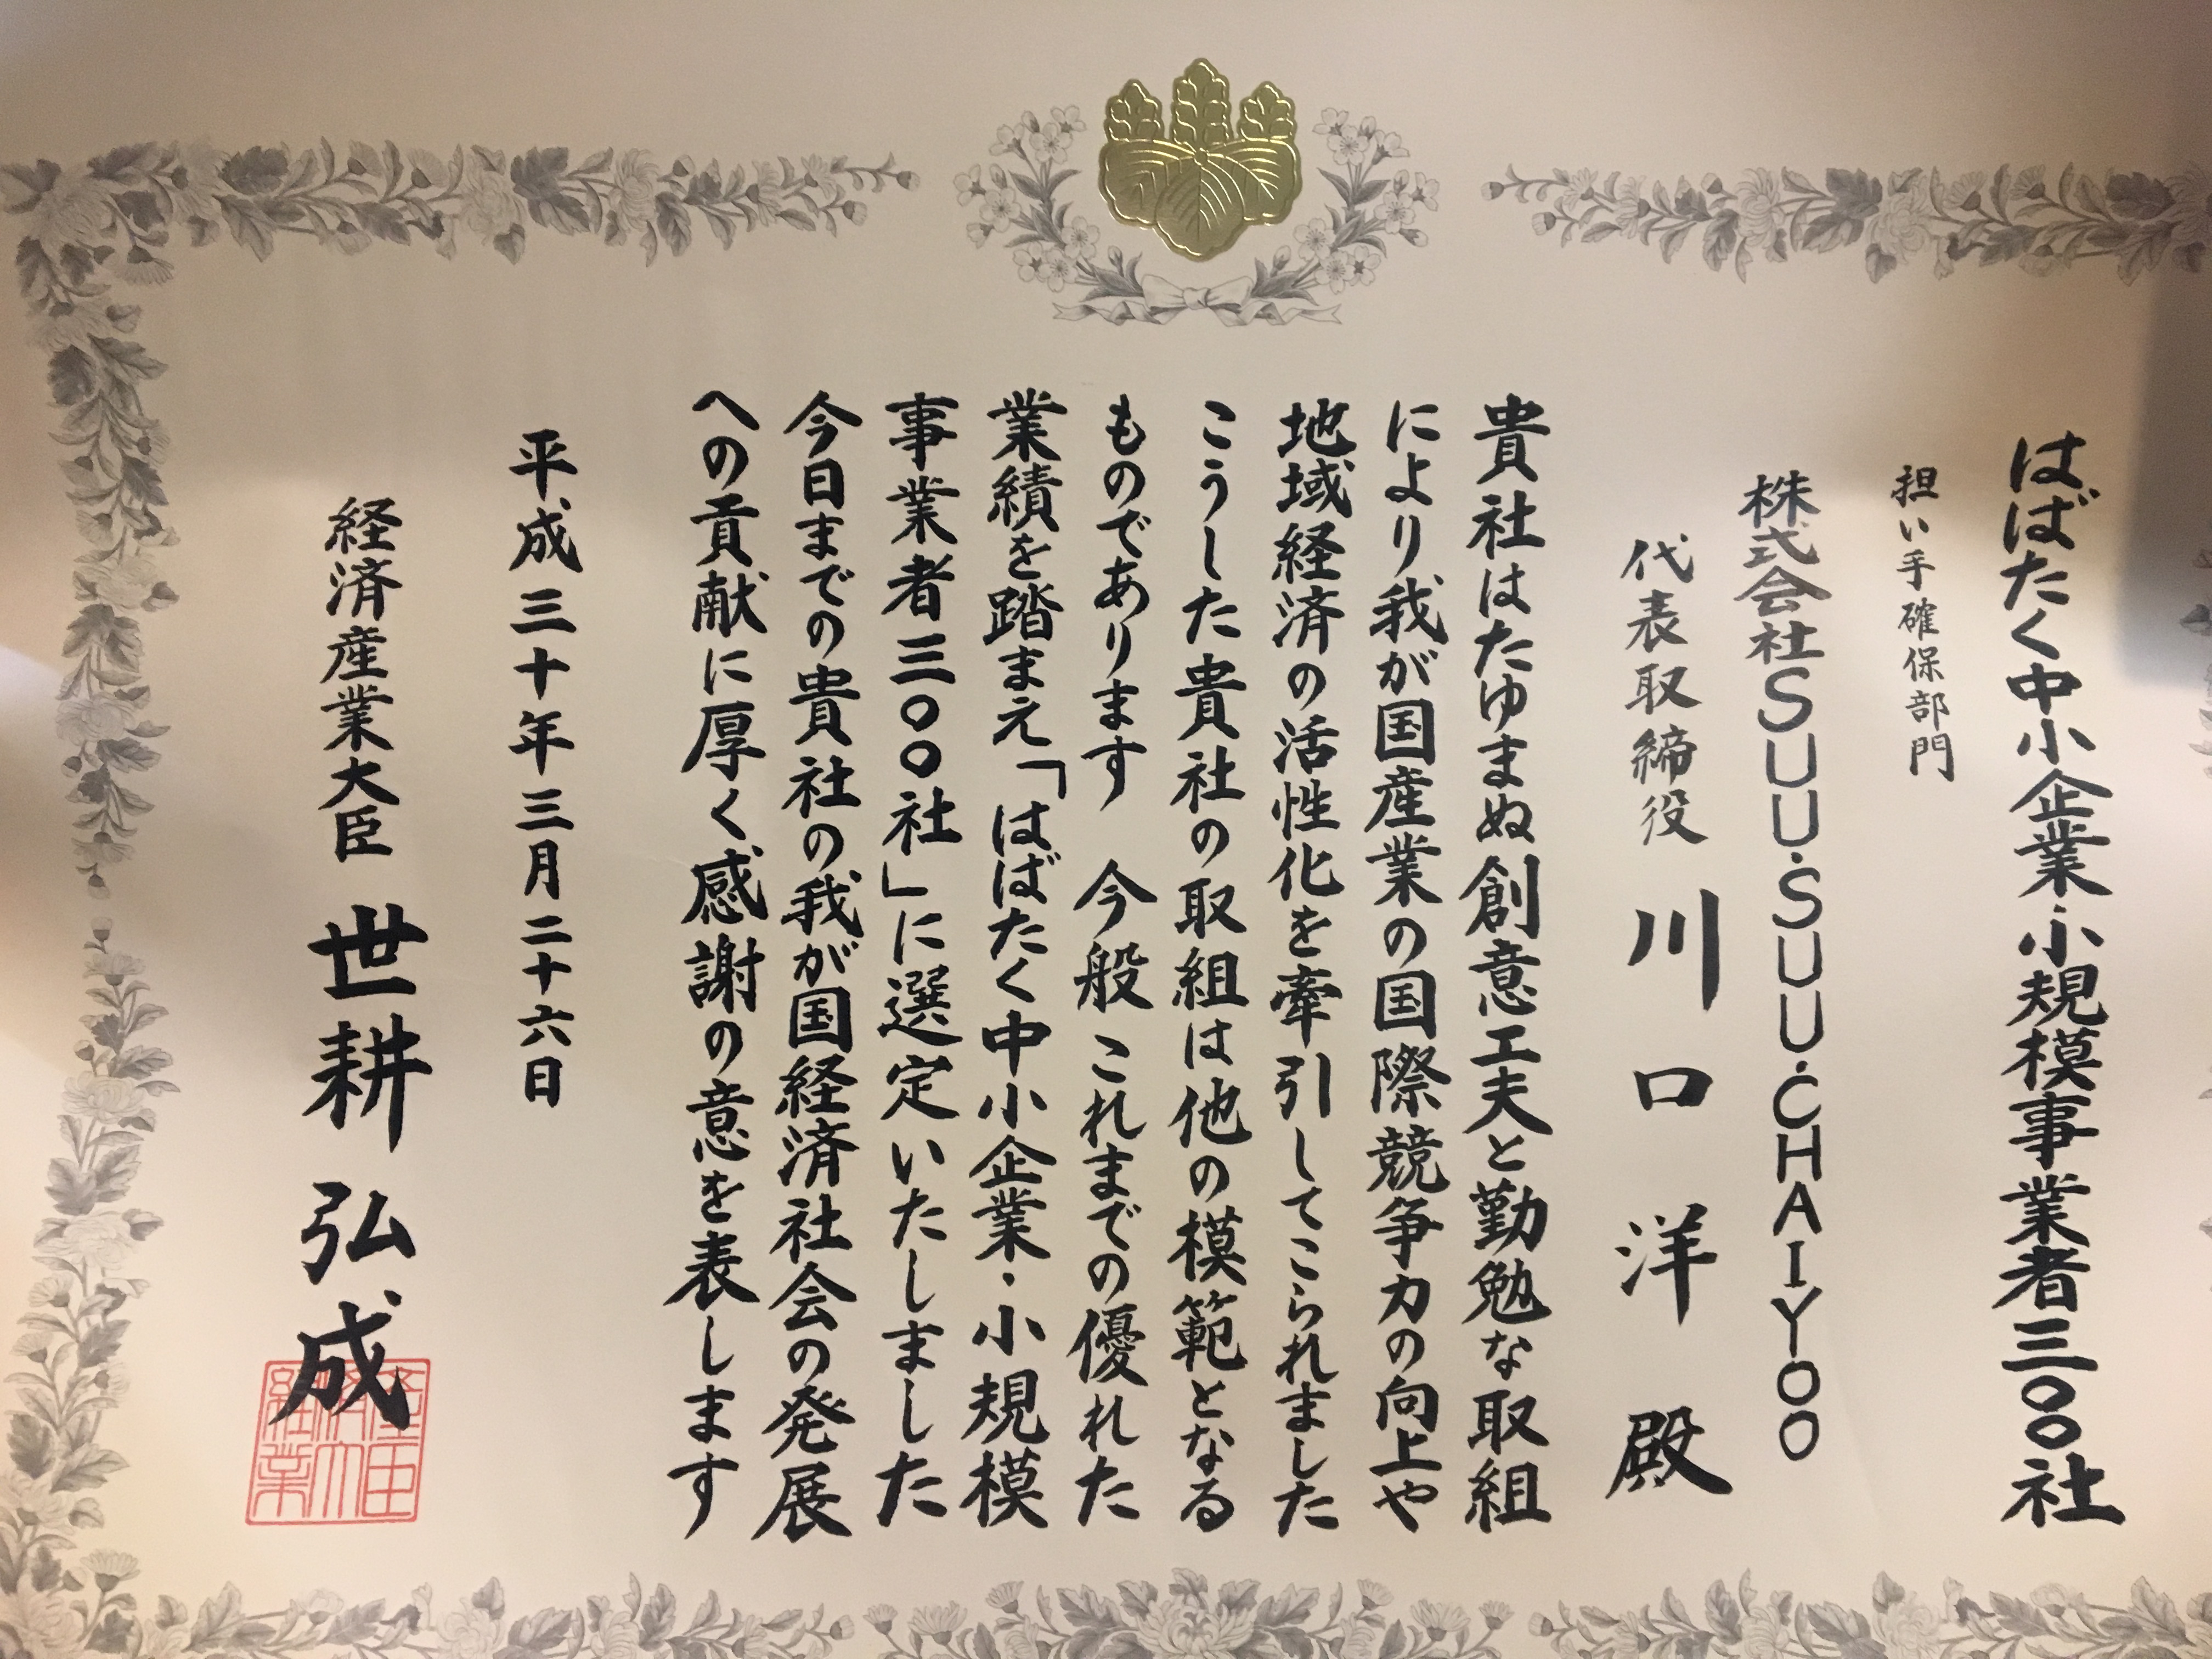 はばたく中小企業・小規模事業者三〇〇社
担い手確保部門
株式会社SUU・SUU・CHAIYOO
代表取締役 川口 洋 殿
貴社はたゆまぬ創意工夫と勤勉な取組
により我が国産業の国際競争力の向上や
地域経済の活性化を牽引してこられました
こうした貴社の取組は他の模範となる
ものであります 今般これまでの優れた
業績を踏まえ「はばたく中小企業・小規模
事業者三〇〇社」に選定いたしました
今日までの貴社の我が国経済社会の発展
への貢献に厚く感謝の意を表します
平成三十年三月二十六日
経済産業大臣 世耕弘成